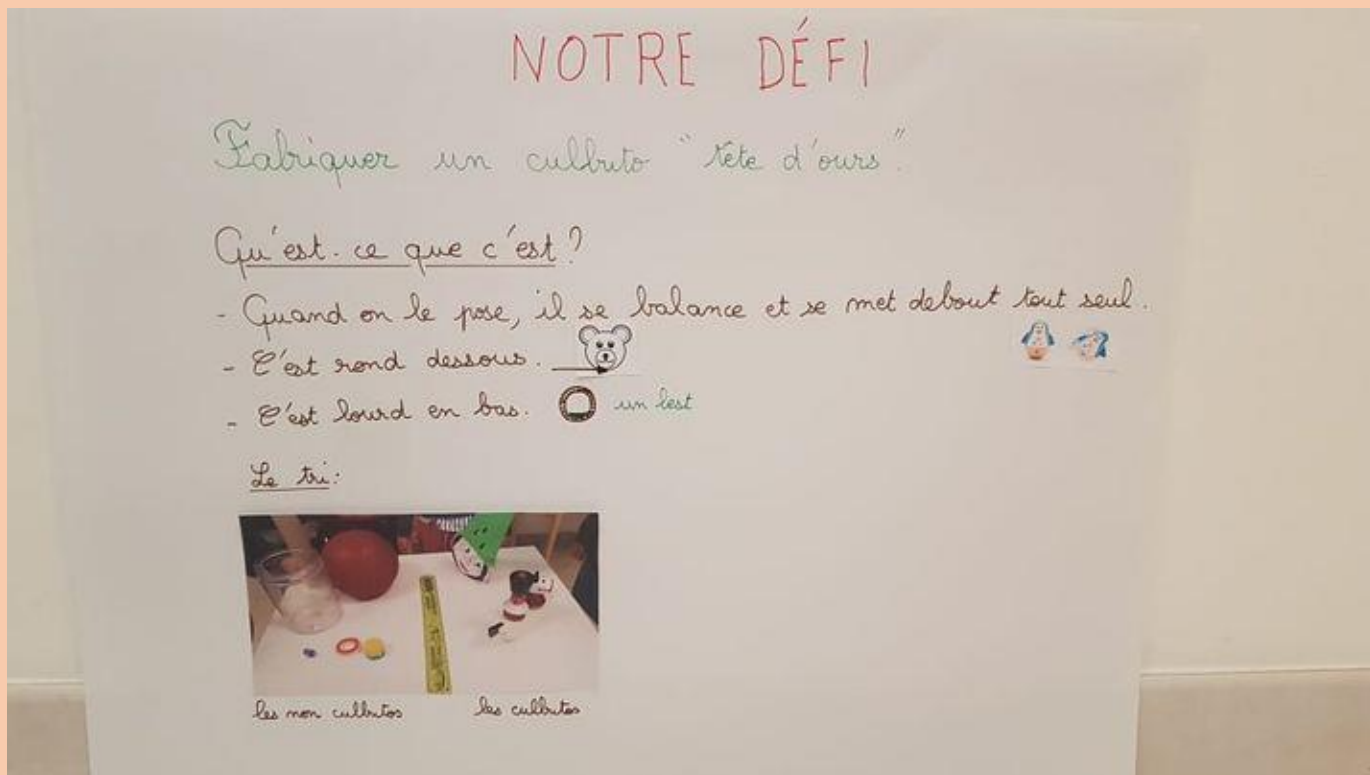 NOTRE DÉFI
Fabriquer un culbuto "tête d'ours".
Qu'est-ce que c'est?
- Quand on le pose, il se balance et se met debout tout seul.
- C'est rond dessous.
- C'est lourd en bas. un lest
Le tri:
les non culbutos les culbutos